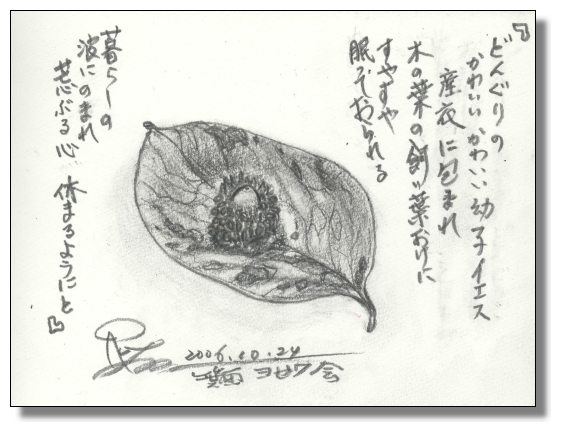 『どんぐりの
かわいいかわいい幼子イエス
産衣に包まれ
木の葉の飼い葉おけに
すやすや
眠っておられる
暮らしの
波にのまれ
荒ぶる心
休まるようにと』
2006.10.24
箕面 ヨセフ会